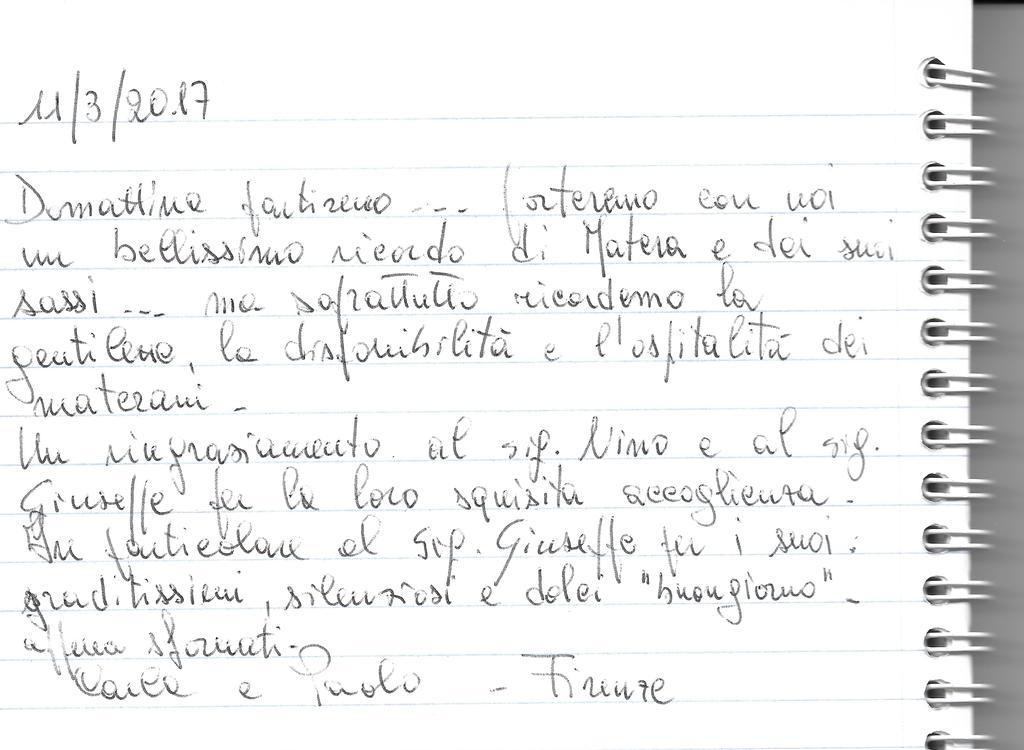 11/3/2017
Domattina partiremo --- porteremo con noi
un bellissimo ricordo di Matera e dei suoi
sassi --- ma soprattutto ricordemo la
gentilezza, la disponibilità e l'ospitalità dei
materani -
Un ringraziamento al sig. Nino e al sig.
Giuseppe per la loro squisita accoglienza -
In particolare al sig. Giuseppe per i suoi
graditissimi, silenziosi e dolci "buongiorno" -
appena sfornati -
Carla e Paolo - Firenze